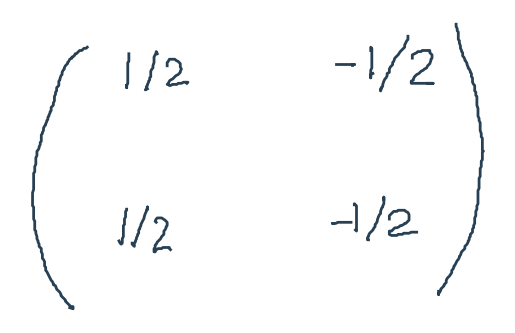 1/2 -1/2
1/2 -1/2